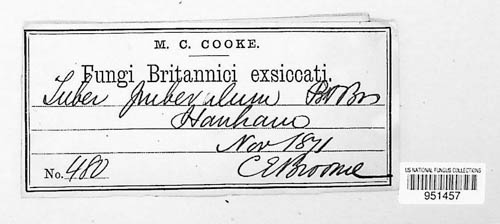 M. C. COOKE.
Fungi Britannici exsiccati.
Tuber puberulum B & Br
Hanham
Nov 1871
No. 480 CEBroome
US NATIONAL FUNGUS COLLECTIONS
951457